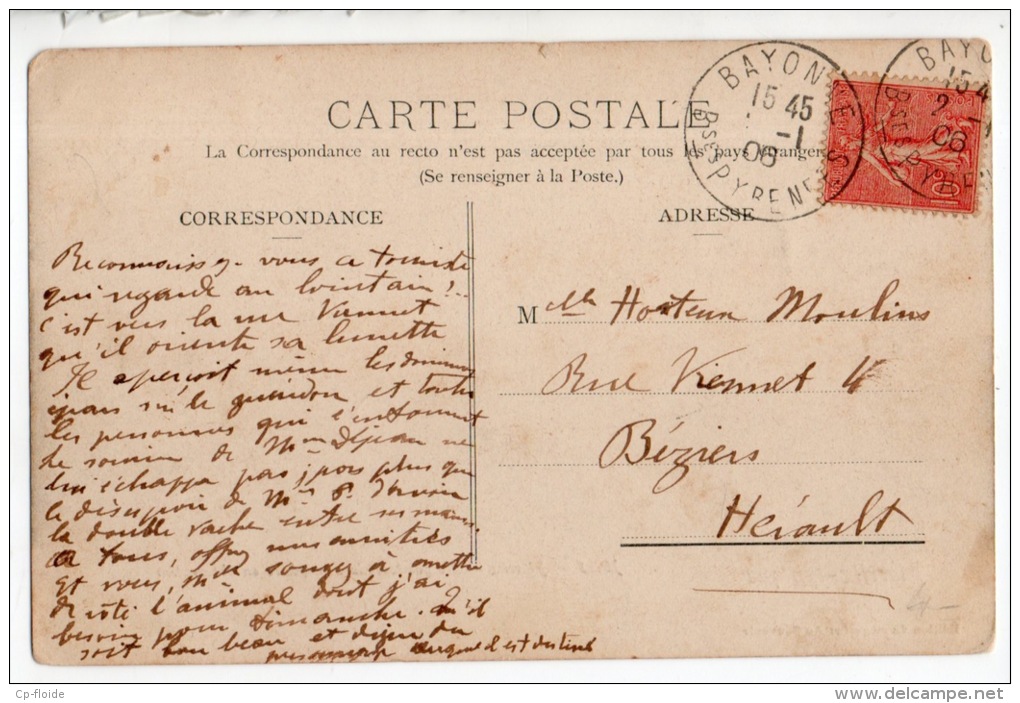 CARTE POSTALE
La Correspondance au recto n'est pas acceptée par tous les pays étrangers
(Se renseigner à la Poste.)
BAYONNE
15 45
-1
06
BSES PYRENEES
BAYO
15 4
2 -1
06
BSES PYRE
10
CORRESPONDANCE
Reconnaissez-vous ce touriste
qui regarde au lointain?..
C'est vers la rue Viennet
qu'il oriente sa lunette
Il aperçoit même les
sur le guéridon et toutes
les personnes qui l'entourent
le sourire de Mme Dejean ne
lui échappe pas, plus que
le désespoir de Mr P. d'avoir
la double vache entre ses mains.
A tous, offrez nos amitiés
Et vous, songez à mettre
de côté l'animal dont j'ai
besoin pour Dimanche. Qu'il
soit bon beau et digne du
personnage auquel il est destiné
ADRESSE
M elle Horteux Moulins
Rue Viennet 4
Béziers
Hérault
4-
Cp-floide
www.delcampe.net